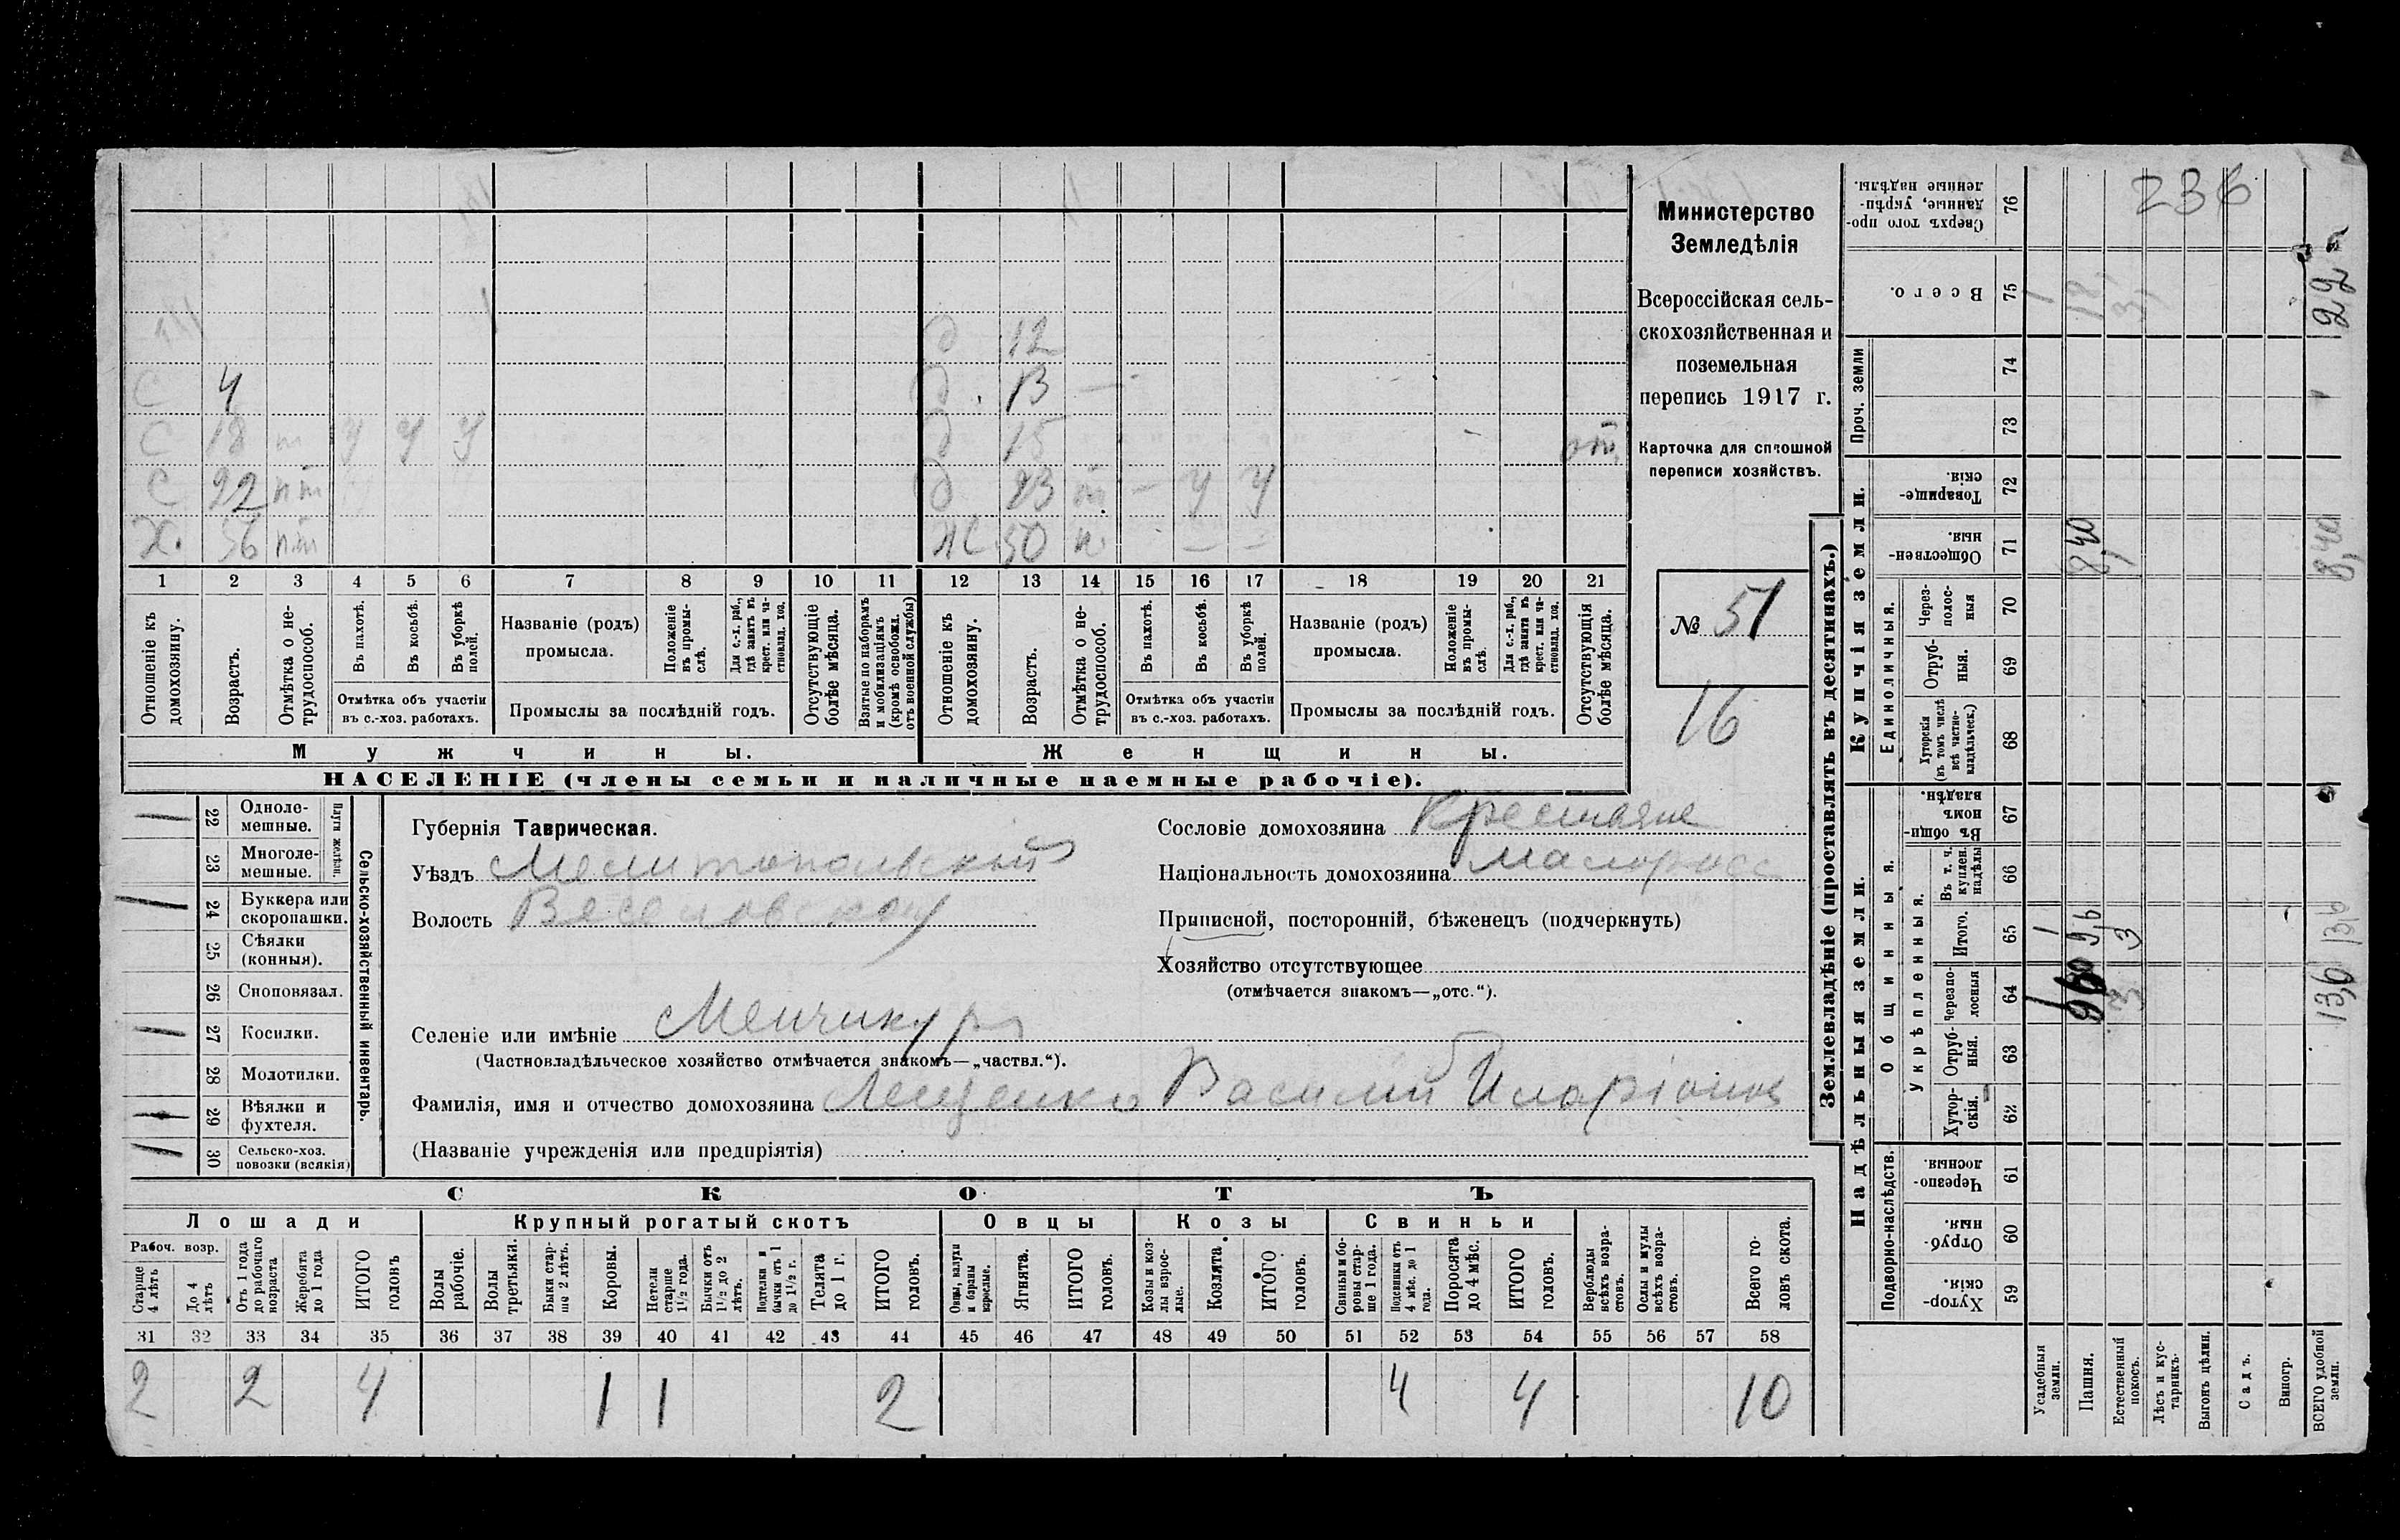 Министерство
Земледѣлія
Всероссійская сель-
скохозяйственная и
поземельная
перепись 1917 г.
Карточка для сплошной
переписи хозяйствъ.
№ 51
16
д 12
С 4 д. 13 —
С 18 т у у у д 15 от.
С 22 пт д 23 т — у у
Х. 56 пт Ж 50 п — —
1 2 3 4 5 6 7 8 9 10 11 12 13 14 15 16 17 18 19 20 21
Отношеніе къ домохозяину.
Возрастъ.
Отмѣтка о не-трудоспособ.
Въ пахотѣ.
Въ косьбѣ.
Въ уборкѣ полей.
Отмѣтка объ участіи
въ с.-хоз. работахъ.
Названіе (родъ)
промысла.
Положеніе въ промы-слѣ.
Для с.-х. раб., гдѣ занятъ въ крест. или ча-стновлад. хоз.
Промыслы за послѣдній годъ.
Отсутствующіе болѣе мѣсяца.
Взятые по наборамъ и мобилизаціямъ (кромѣ освобожд. отъ военной службы)
Отношеніе къ домохозяину.
Возрастъ.
Отмѣтка о не-трудоспособ.
Въ пахотѣ.
Въ косьбѣ.
Въ уборкѣ полей.
Отмѣтка объ участіи
въ с.-хоз. работахъ.
Названіе (родъ)
промысла.
Положеніе въ промы-слѣ.
Для с.-х. раб., гдѣ занята въ крест. или ча-стновлад. хоз.
Промыслы за послѣдній годъ.
Отсутствующія болѣе мѣсяца.
Мужчины.
Женщины.
НАСЕЛЕНІЕ (члены семьи и наличные наемные рабочіе).
22 Одноле-мешные.
23 Многоле-мешные.
Плуги желѣзн.
24 Буккера или скоропашки.
25 Сѣялки (конныя).
26 Сноповязал.
27 Косилки.
28 Молотилки.
29 Вѣялки и фухтеля.
30 Сельско-хоз. повозки (всякія)
Сельско-хозяйственный инвентарь.
Губернія Таврическая.
Уѣздъ Мелитопольскій
Волость Веселовская
Сословіе домохозяина Крестьяне
Національность домохозяина малоросс
Приписной, посторонній, бѣженецъ (подчеркнуть)
Хозяйство отсутствующее
(отмѣчается знакомъ—„отс.“).
Селеніе или имѣніе Менчикур
(Частновладѣльческое хозяйство отмѣчается знакомъ—„частвл.“).
Фамилія, имя и отчество домохозяина Лещенко Василий Иларіонов
(Названіе учрежденія или предпріятія)
СКОТЪ
Лошади
Крупный рогатый скотъ
Овцы
Козы
Свиньи
Рабоч. возр.
Старше 4 лѣтъ
До 4 лѣтъ
Отъ 1 года до рабочаго возраста
Жеребята до 1 года
ИТОГО головъ
Волы рабочіе.
Волы третьяки.
Быки стар-ше 2 лѣтъ.
Коровы.
Нетели старше 1½ года.
Бычки отъ 1½ до 2 лѣтъ.
Подтелки и бычки отъ 1 до 1½ г.
Телята до 1 г.
ИТОГО головъ.
Овцы, валухи и бараны взрослые.
Ягнята.
ИТОГО головъ.
Козы и коз-лы взрос-лые.
Козлята.
ИТОГО головъ.
Свиньи и бо-ровы стар-ше 1 года.
Подсвинки отъ 4 мѣс. до 1 года.
Поросята до 4 мѣс.
ИТОГО головъ.
Верблюды всѣхъ возра-стовъ.
Ослы и мулы всѣхъ возра-стовъ.
Всего го-ловъ скота.
31 32 33 34 35 36 37 38 39 40 41 42 43 44 45 46 47 48 49 50 51 52 53 54 55 56 57 58
2 2 4 1 1 2 4 4 10
Землевладѣніе (проставлять въ десятинахъ.)
Надѣльныя земли.
Купчія земли.
Проч. земли
Подворно-наслѣдств.
Общинныя.
Укрѣпленныя.
Единоличныя.
Сверхъ того про-данные, укрѣп-ленные надѣлы. 76
Всего. 75
74
73
Товарище-скія. 72
Обществен-ныя. 71
Через-полос-ныя 70
Отруб-ныя. 69
Хуторскія (въ томъ числѣ всѣ частно-владѣльческ.) 68
Въ общи-номъ владѣн. 67
Въ т. ч. куплен. надѣлы 66
Итого. 65
Черезпо-лосныя 64
Отруб-ныя. 63
Хутор-скія. 62
Черезпо-лосныя. 61
Отруб-ныя. 60
Хутор-скія. 59
Усадебныя земли.
Пашня.
Естественный покосъ.
Лѣсъ и кус-тарникъ.
Выгонъ цѣлин.
Садъ.
Виногр.
ВСЕГО удобной земли.
236
1 18, 3, 22
8,40 8,40
1 9,6 3 13,6
13,6